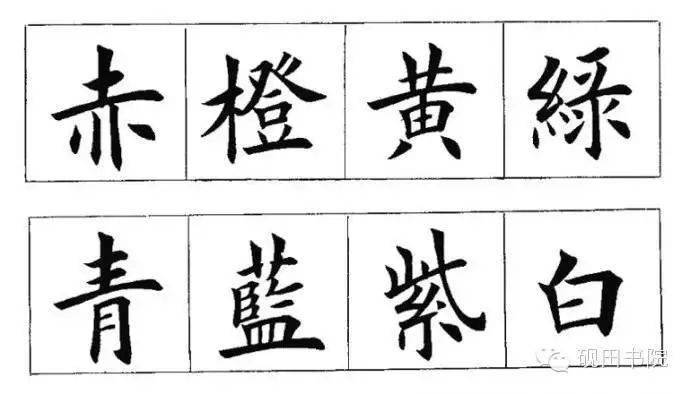 赤橙黄綠
青藍紫白
砚田书院